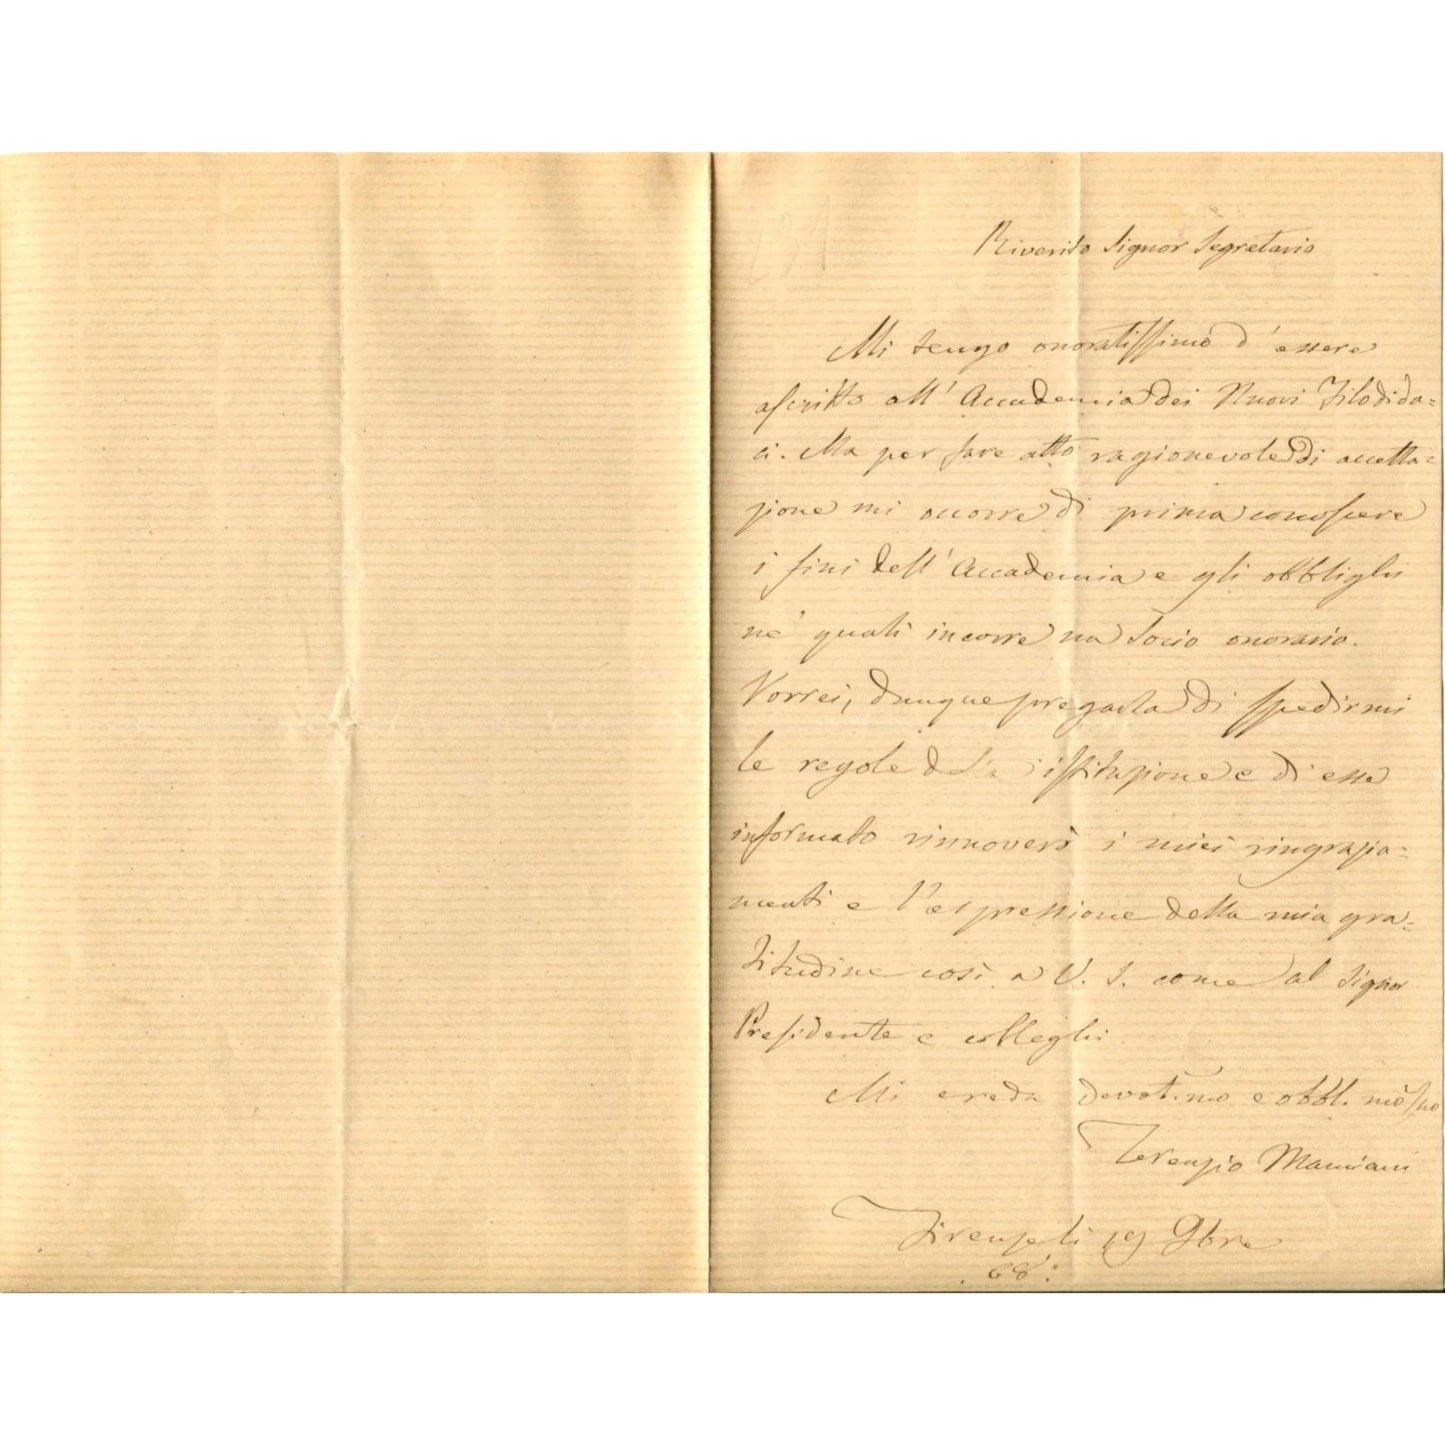 Riverito Signor Segretario
Mi tengo onoratissimo d'essere
ascritto all'Accademia dei Nuovi Filodida=
ci. Ma per fare atto ragionevole di accetta=
zione mi occorre di prima conoscere
i fini dell'Accademia e gli obblighi
ne' quali incorre un Socio onorario.
Vorrei, dunque pregarla di spedirmi
le regole della istituzione e di esse
informato rinnoverò i miei ringrazia=
menti e l'espressione della mia gra=
titudine così a V. S. come al Signor
Presidente e colleghi
Mi creda devot.mo e obbl.mo suo
Terenzio Mamiani
Firenze li 19 9bre
68.